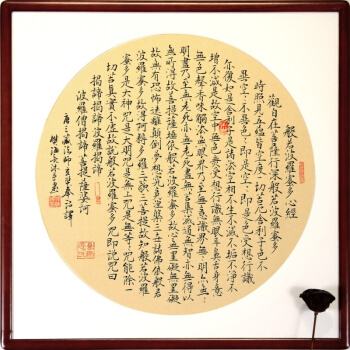 般若波羅蜜多心經
觀自在菩薩行深般若波羅蜜多
時照見五蘊皆空度一切苦厄舍利子色不
異空空不異色色即是空空即是色受想行識
亦復如是舍利子是諸法空相不生不滅不垢不淨不
增不減是故空中無色無受想行識無眼耳鼻舌身意
無色聲香味觸法無眼界乃至無意識界無無明亦無
無明盡乃至無老死亦無老死盡無苦集滅道無智亦無得以
無所得故菩提薩埵依般若波羅蜜多故心無罣礙無罣礙
故無有恐怖遠離顛倒夢想究竟涅槃三世諸佛依般若
波羅蜜多故得阿耨多羅三藐三菩提故知般若波羅
蜜多是大神咒是大明咒是無上咒是無等等咒能除一
切苦真實不虛故說般若波羅蜜多咒即說咒曰
揭諦揭諦波羅揭諦
波羅僧揭諦菩提薩婆訶
唐三藏法師玄奘奉詔譯